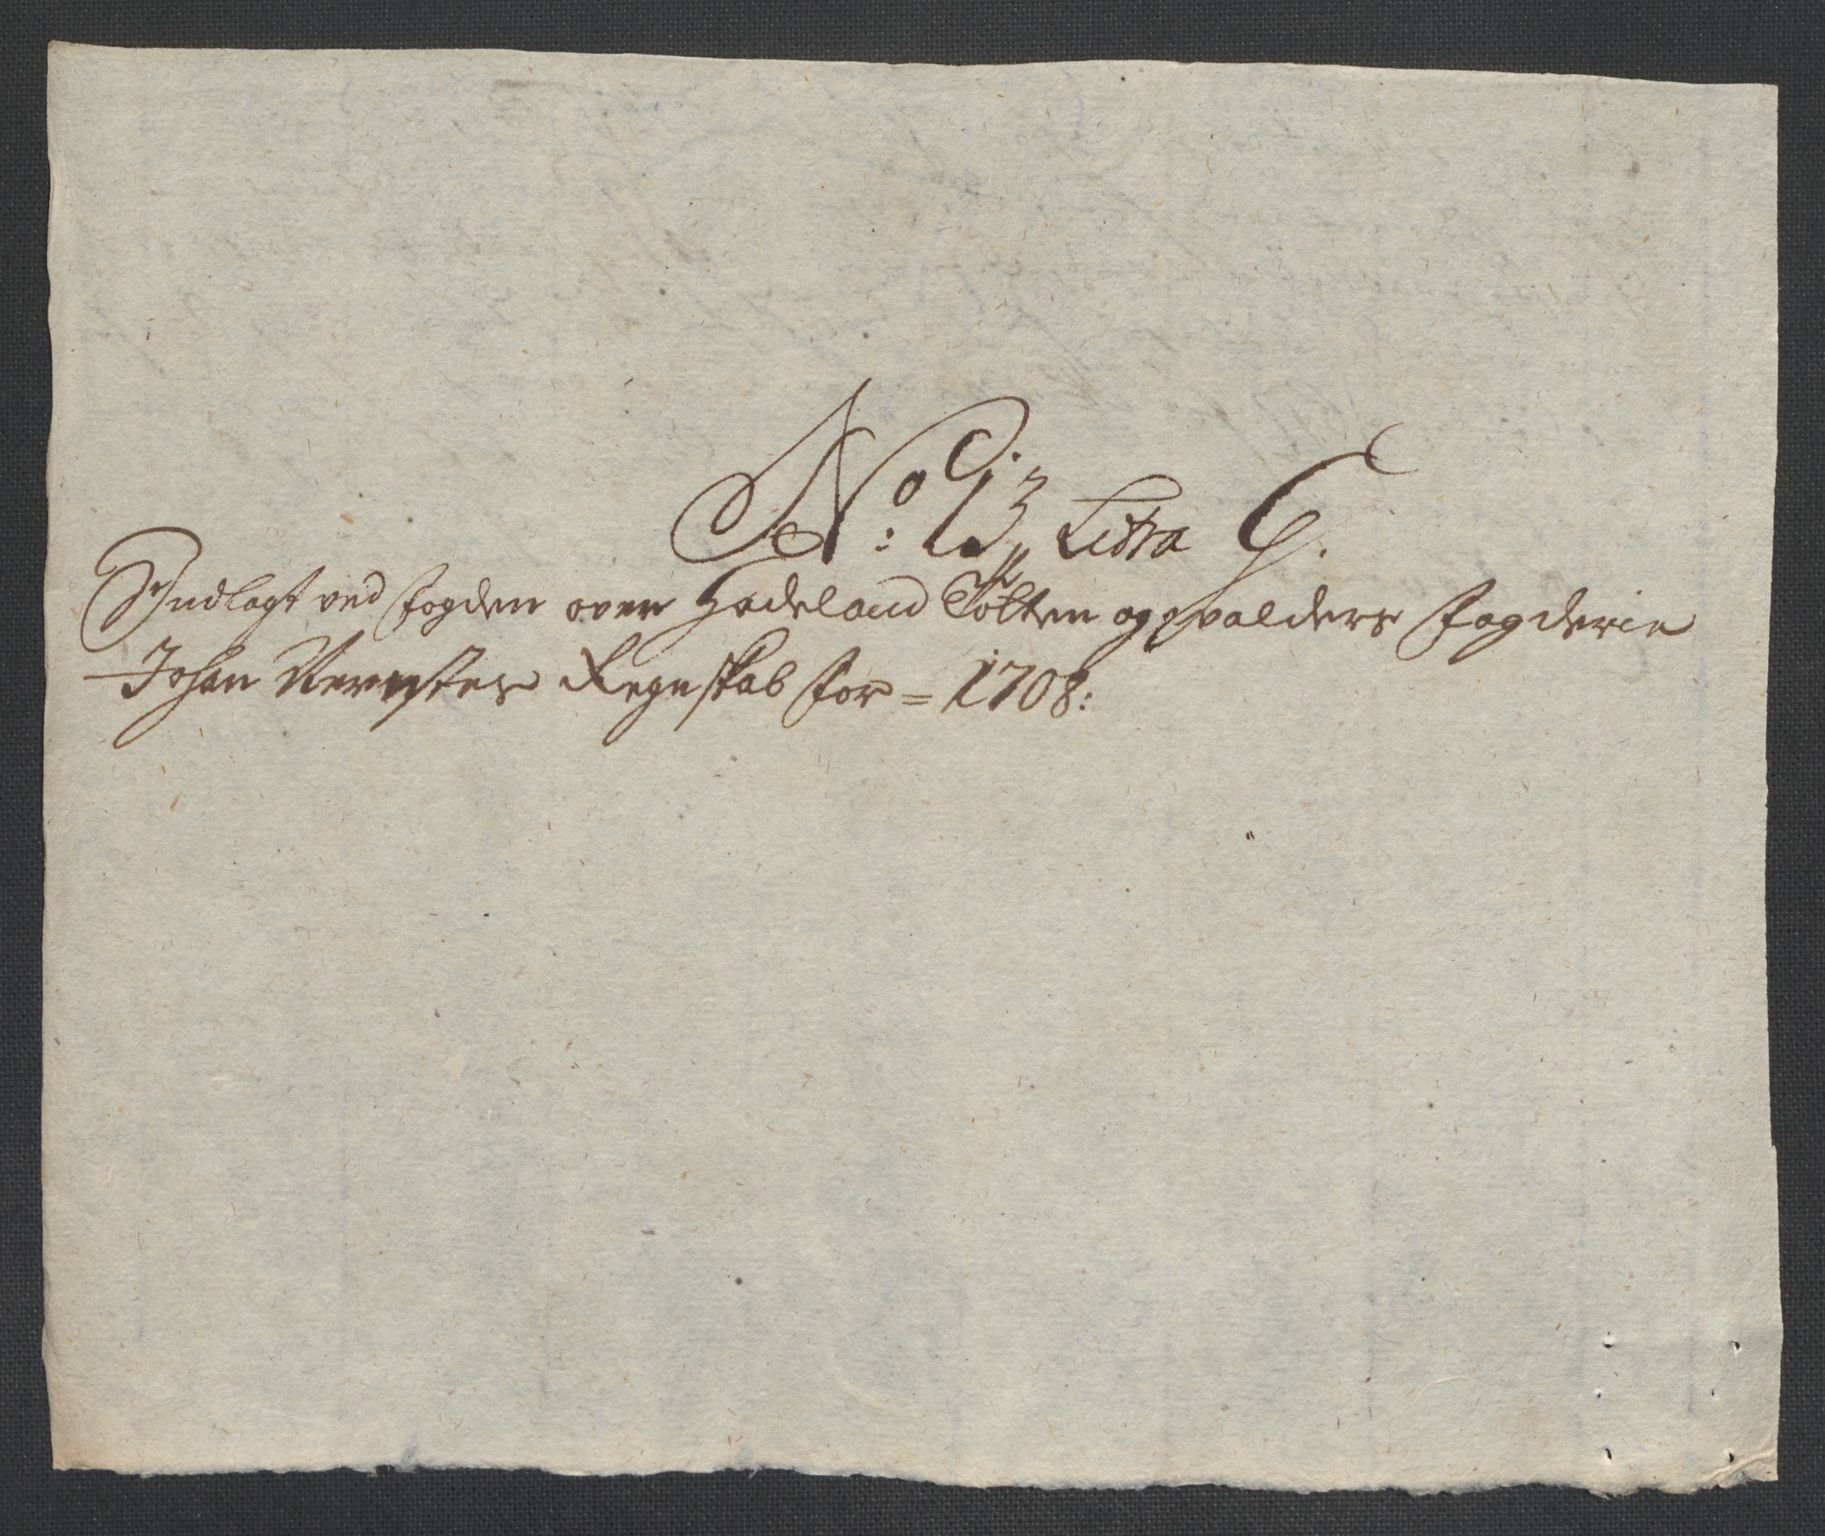 No: 13 Litra C.
Indlagt ved fogden over Hadeland Tolten og Walders fogderie
Johan Regnskab for = 1708: